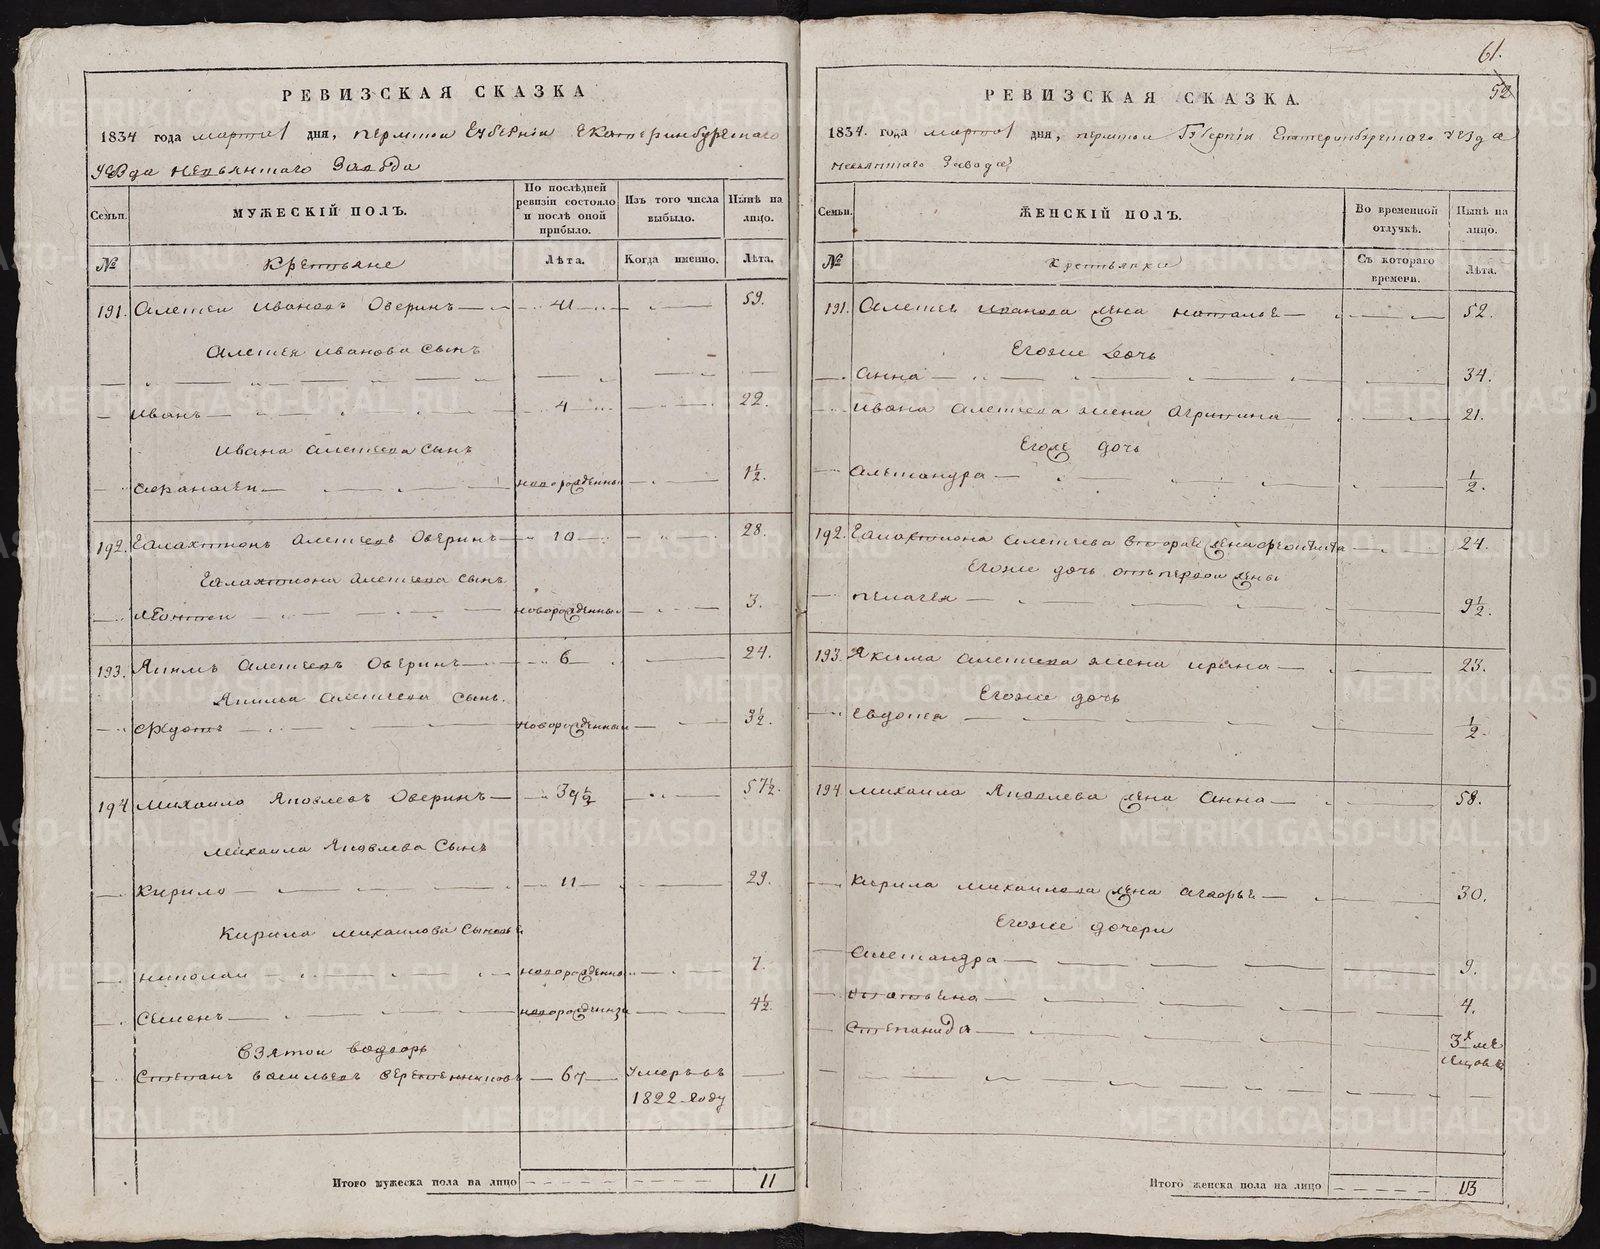 РЕВИЗСКАЯ СКАЗКА
1834 года марта 1 дня, пермской губернии екатеринбургскаго
уезда невьянскаго завода
Семьи.
МУЖЕСКІЙ ПОЛЪ.
По послѣдней ревизіи состояло и послѣ оной прибыло.
Изъ того числа выбыло.
Нынѣ на лицо.
№
Крестьяне
Лѣта.
Когда именно.
Лѣта.
191. Алексеи Ивановъ Оверинъ 41 59.
Алексея Иванова сынъ
Иванъ 4 22.
Ивана Алексеева сынъ
Афанасеи новорожденныи 1½.
192. Галахтионъ Алексеевъ Оверинъ 10 28.
Галахтиона Алексеева сынъ
Леонтеи новорожденныи 3.
193. Якимъ Алексеевъ Оверинъ 6 24.
Якима Алексеева сынъ.
Федотъ новорожденныи 3½.
194 Михаило Яковлевъ Оверинъ 39½ 57½.
Михаила Яковлева сынъ
Кирило 11 29.
Кирила Михаилова сыновья
Николаи новорожденныи 7.
Семенъ новорожденныи 4½.
Взятои водворъ
Степанъ Васильевъ Веретенниковъ 67 умеръ въ
1822 году
Итого мужеска пола на лицо 11
61.
52
РЕВИЗСКАЯ СКАЗКА.
1834. года марта 1 дня, пермскои Губернии Екатеринбургскаго уезда
невьянскаго завода
Семьи.
ЖЕНСКІЙ ПОЛЪ.
Во временной отлучкѣ.
Нынѣ на лицо.
№
Крестьянки
Съ котораго времени.
Лѣта.
191. Алексея Иванова жена Наталья 52.
Егоже дочь
Анна 34.
Ивана Алексеева жена Агрипина 21.
Егоже дочь
Александра ½.
192. Галахтиона Алексеева вторая жена 24.
Егоже дочь отъ первои жены
Пелагея 9½.
193. Якима Алексеева жена Ирина 23.
Егоже дочь
Евдокея ½.
194. Михаила Яковлева жена Анна 58.
Кирила Михаилова жена 30.
Егоже дочери
Александра 9.
Татьяна 4.
Степанида 3х ме
сяцовъ
Итого женска пола на лицо 13
METRIKI.GASO-URAL.RU